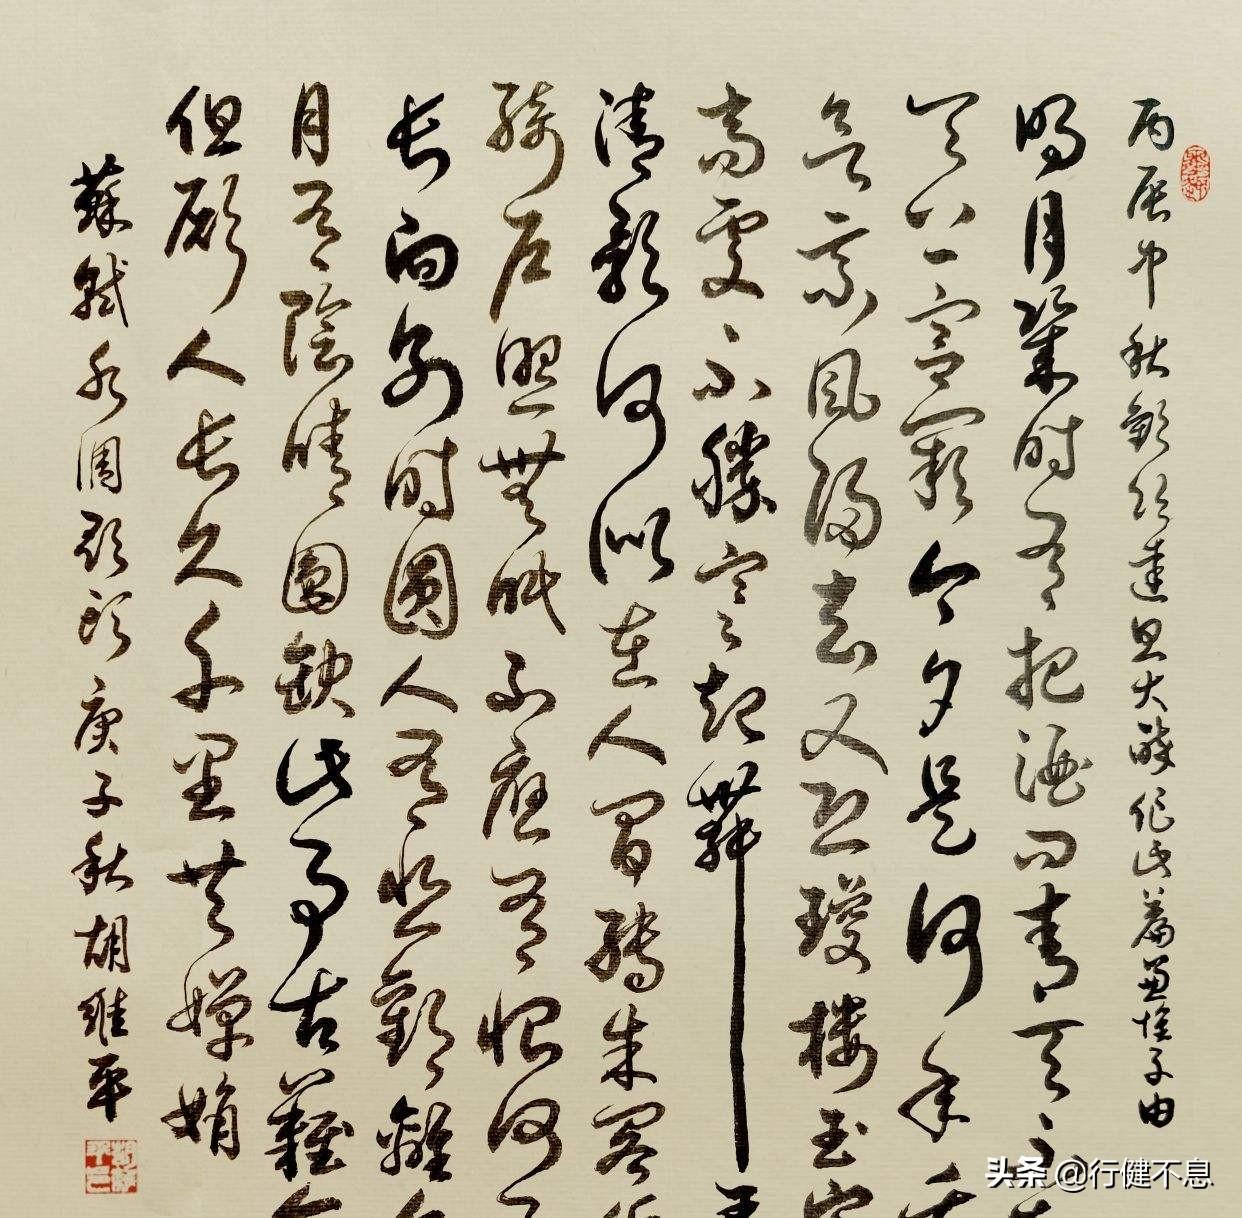 丙辰中秋歡飲達旦大醉作此篇兼懷子由
明月幾時有把酒問青天不
天上宮闕今夕是何年
欲乘風歸去又恐瓊樓玉宇
高處不勝寒起舞弄
清影何似在人間轉朱閣低
綺戶照無眠不應有恨何
長向別時圓人有悲歡離合
月有陰晴圓缺此事古難全
但願人長久千里共嬋娟
蘇軾水調歌頭庚子秋胡維平
头条 @行健不息